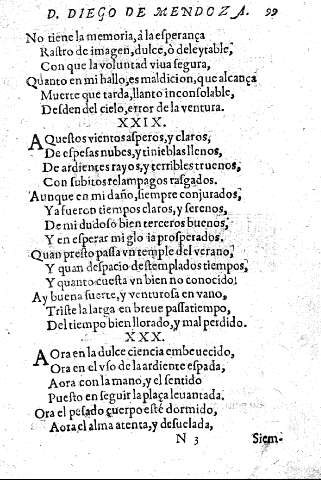 D. DIEGO DE MENDOZA. 99
No tiene la memoria, á la esperança
Rastro de imagen, dulce, ò deleytable,
Con que la voluntad viua segura,
Quanto en mi hallo, es maldicion, que alcança
Muerte que tarda, llanto inconsolable,
Desden del cielo, error de la ventura.
XXIX.
AQuestos vientos asperos, y claros,
De espesas nubes, y tinieblas llenos,
De ardientes rayos, y terribles truenos,
Con subitos relampagos rasgados.
Aunque en mi daño, siempre conjurados,
Ya fueron tiempos claros, y serenos,
De mi dudoso bien terceros buenos,
Y en esperar mi glo ia prosperados.
Quan presto passa vn temple del verano,
Y quan despacio destemplados tiempos,
Y quanto cuesta vn bien no conocido:
Ay buena suerte, y venturosa en vano,
Triste la larga en breue passatiempo,
Del tiempo bien llorado, y mal perdido.
XXX.
AOra en la dulce ciencia embeuecido,
Ora en el vso de la ardiente espada,
Aora con la mano, y el sentido
Puesto en seguir la plaça leuantada.
Ora el pesado cuerpo esté dormido,
Aora el alma atenta, y desuelada,
N 3 Siem-